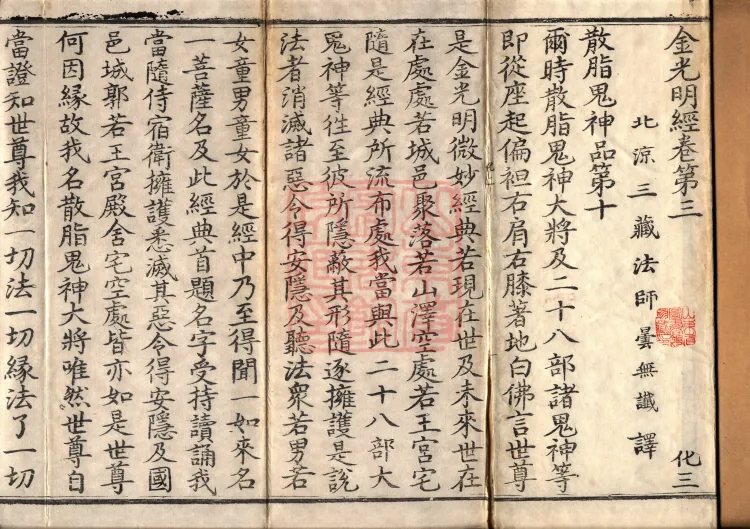 金光明經卷第三 化三
北涼三藏法師曇無讖 譯
散脂鬼神品第十
爾時散脂鬼神大將及二十八部諸鬼神等
即從座起偏袒右肩右膝著地白佛言世尊
是金光明微妙經典若現在世及未來世在
在處處若城邑聚落若山澤空處若王宮宅
隨是經典所流布處我當與此二十八部大
鬼神等往至彼所隱蔽其形隨逐擁護是說
法者消滅諸惡令得安隱及聽法眾若男若
女童男童女於是經中乃至得聞一如來名
一菩薩名及此經典首題名字受持讀誦我
當隨侍宿衛擁護悉滅其惡令得安隱及國
邑城郭若王宮殿舍宅空處皆亦如是世尊
何因緣故我名散脂鬼神大將唯然世尊自
當證知世尊我知一切法一切緣法了一切